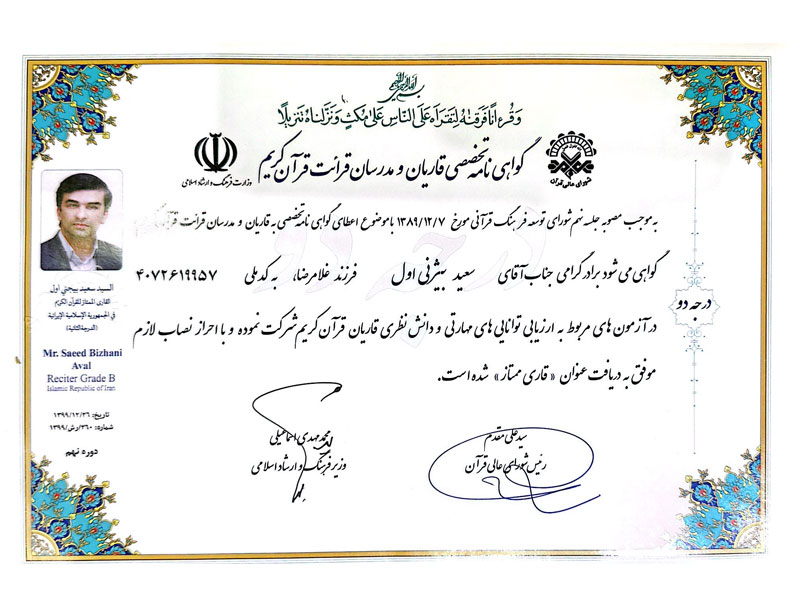 بسم الله الرحمن الرحیم
وَقُرْءَانًا فَرَقْنَٰهُ لِتَقْرَأَهُ عَلَى النَّاسِ عَلَىٰ مُكْثٍ وَنَزَّلْنَاهُ تَنْزِيلًا
شورای عالی قرآن
گواهی نامه تخصصی قاریان و مدرسان قرائت قرآن کریم
وزارت فرهنگ و ارشاد اسلامی
به موجب مصوبه جلسه نهم شورای توسعه فرهنگ قرآنی مورخ ۱۳۸۹/۱۲/۷ با موضوع اعطای گواهی نامه تخصصی به قاریان و مدرسان قرائت قرآن کریم
گواهی می شود برادر گرامی جناب آقای سعید بیژنی اول فرزند غلامرضا، به کد ملی ۴۰۷۲۶۱۹۹۵۷
در آزمون های مربوط به ارزیابی توانایی های مهارتی و دانش نظری قاریان قرآن کریم شرکت نموده و با احراز نصاب لازم
موفق به دریافت عنوان «قاری ممتاز» شده است.
درجه دو
درجه دو
السید سعید بیجنی اول
القاری الممتاز للقرآن الکریم
في الجمهورية الإسلامية الإيرانية
(الدرجة الثانية)
Mr. Saeed Bizhani
Aval
Reciter Grade B
Islamic Republic of Iran
تاریخ: ۱۳۹۹/۱۲/۲۶
شماره: ۳۶۰/رش/۱۳۹۹
دوره نهم
سید علی مقدم
رئیس شورای عالی قرآن
محمد مهدی اسماعیلی
وزیر فرهنگ و ارشاد اسلامی